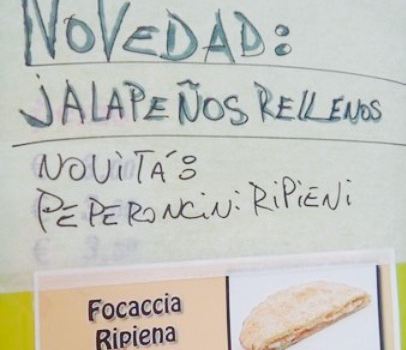 NOVEDAD:
JALAPEÑOS RELLENOS
NOVITÁ:
PEPERONCINI RIPIENI
€ 3,50
Focaccia
Ripiena